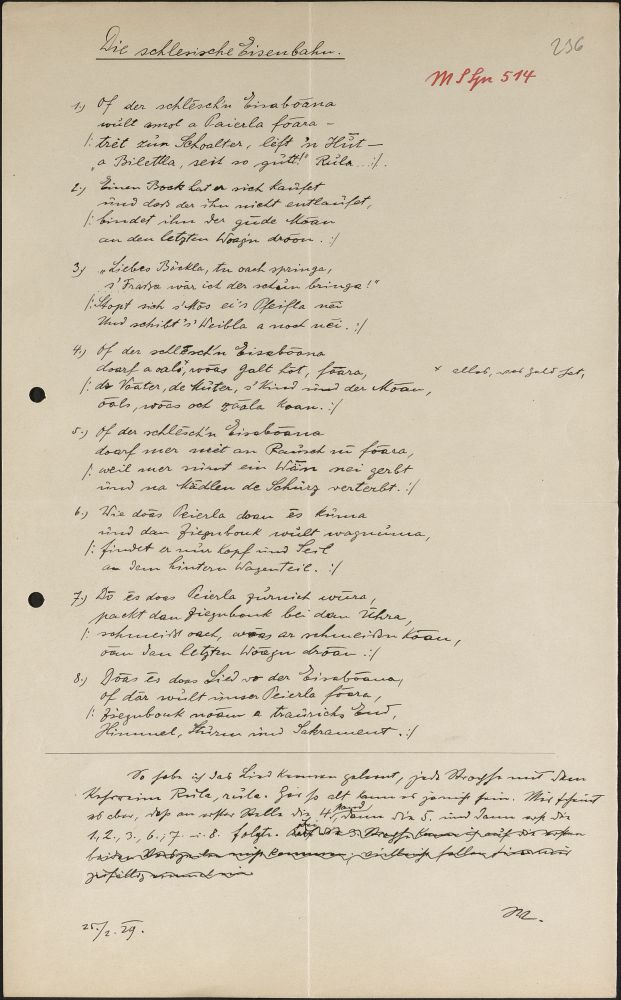 Die schlesische Eisenbahn.
236
M S Gn 514
1.) Of der schlesch'n Eisaboana
wült amol a Paierla foara –
/: trēt zun Schoalter, lēft 'n Hüt –
„a Bilettla, seit so gutt!" Rula...:/.
2.) Einen Bock hat er sich kaufet
und daß der ihn nicht entlaufet,
/: bindet ihn der gude Moan
an den letzten Woag'n droon. :/
3.) „Liebes Böckla, tu oach springa,
s' Fraßa wär ich der schun bringa!"
/: Stopt sich s' Mos ei's Pfeifla nei
Und schibt 's' Weibla a noch nei. :/
4.) Of der schlesch'n Eisaboana
doarf a oals, woas galt hot, foara,
/: de Voater, de Muter, s' Kind und der Moan,
oals, woas och zoala koan. :/
* alles, was Geld hat,
5.) Of der schlesch'n Eisaboana
doarf mer meet an Rausch nu foara,
/: weil mer sunst ein Wän nei gerbt
und na Mädlen de Schürz verterbt. :/
6.) Wie doas Peierla doan es kuma
und dan Ziegnbouk wult wagnuma,
/: findet er nur Kopf und Seil
an dem hintern Wagenteil. :/
7.) Do es doas Peierla zurnich wura,
packt dan Ziegnbouk bei dan Uhra,
/: schmeißt oach, woas ar schmeißn koan,
oan dan letzten Woagn droan :/
8.) Doas es doas Lied vo der Eisaboana,
of dar wult unser Peierla foara,
/: Ziegnbouk noam a traurichs End,
Himmel, Sturm und Sakrament. :/
So habe ich das Lied kennen gelernt, jede Strophe mit dem
Refrain Rula, rula. Gar so alt kann es ja nicht sein. Mir scheint
es aber, daß an erster Stelle die 4. stand, dann die 5. und dann erst die
1., 2., 3., 6., 7. u. 8. folgte.
25./2. 29.
M.